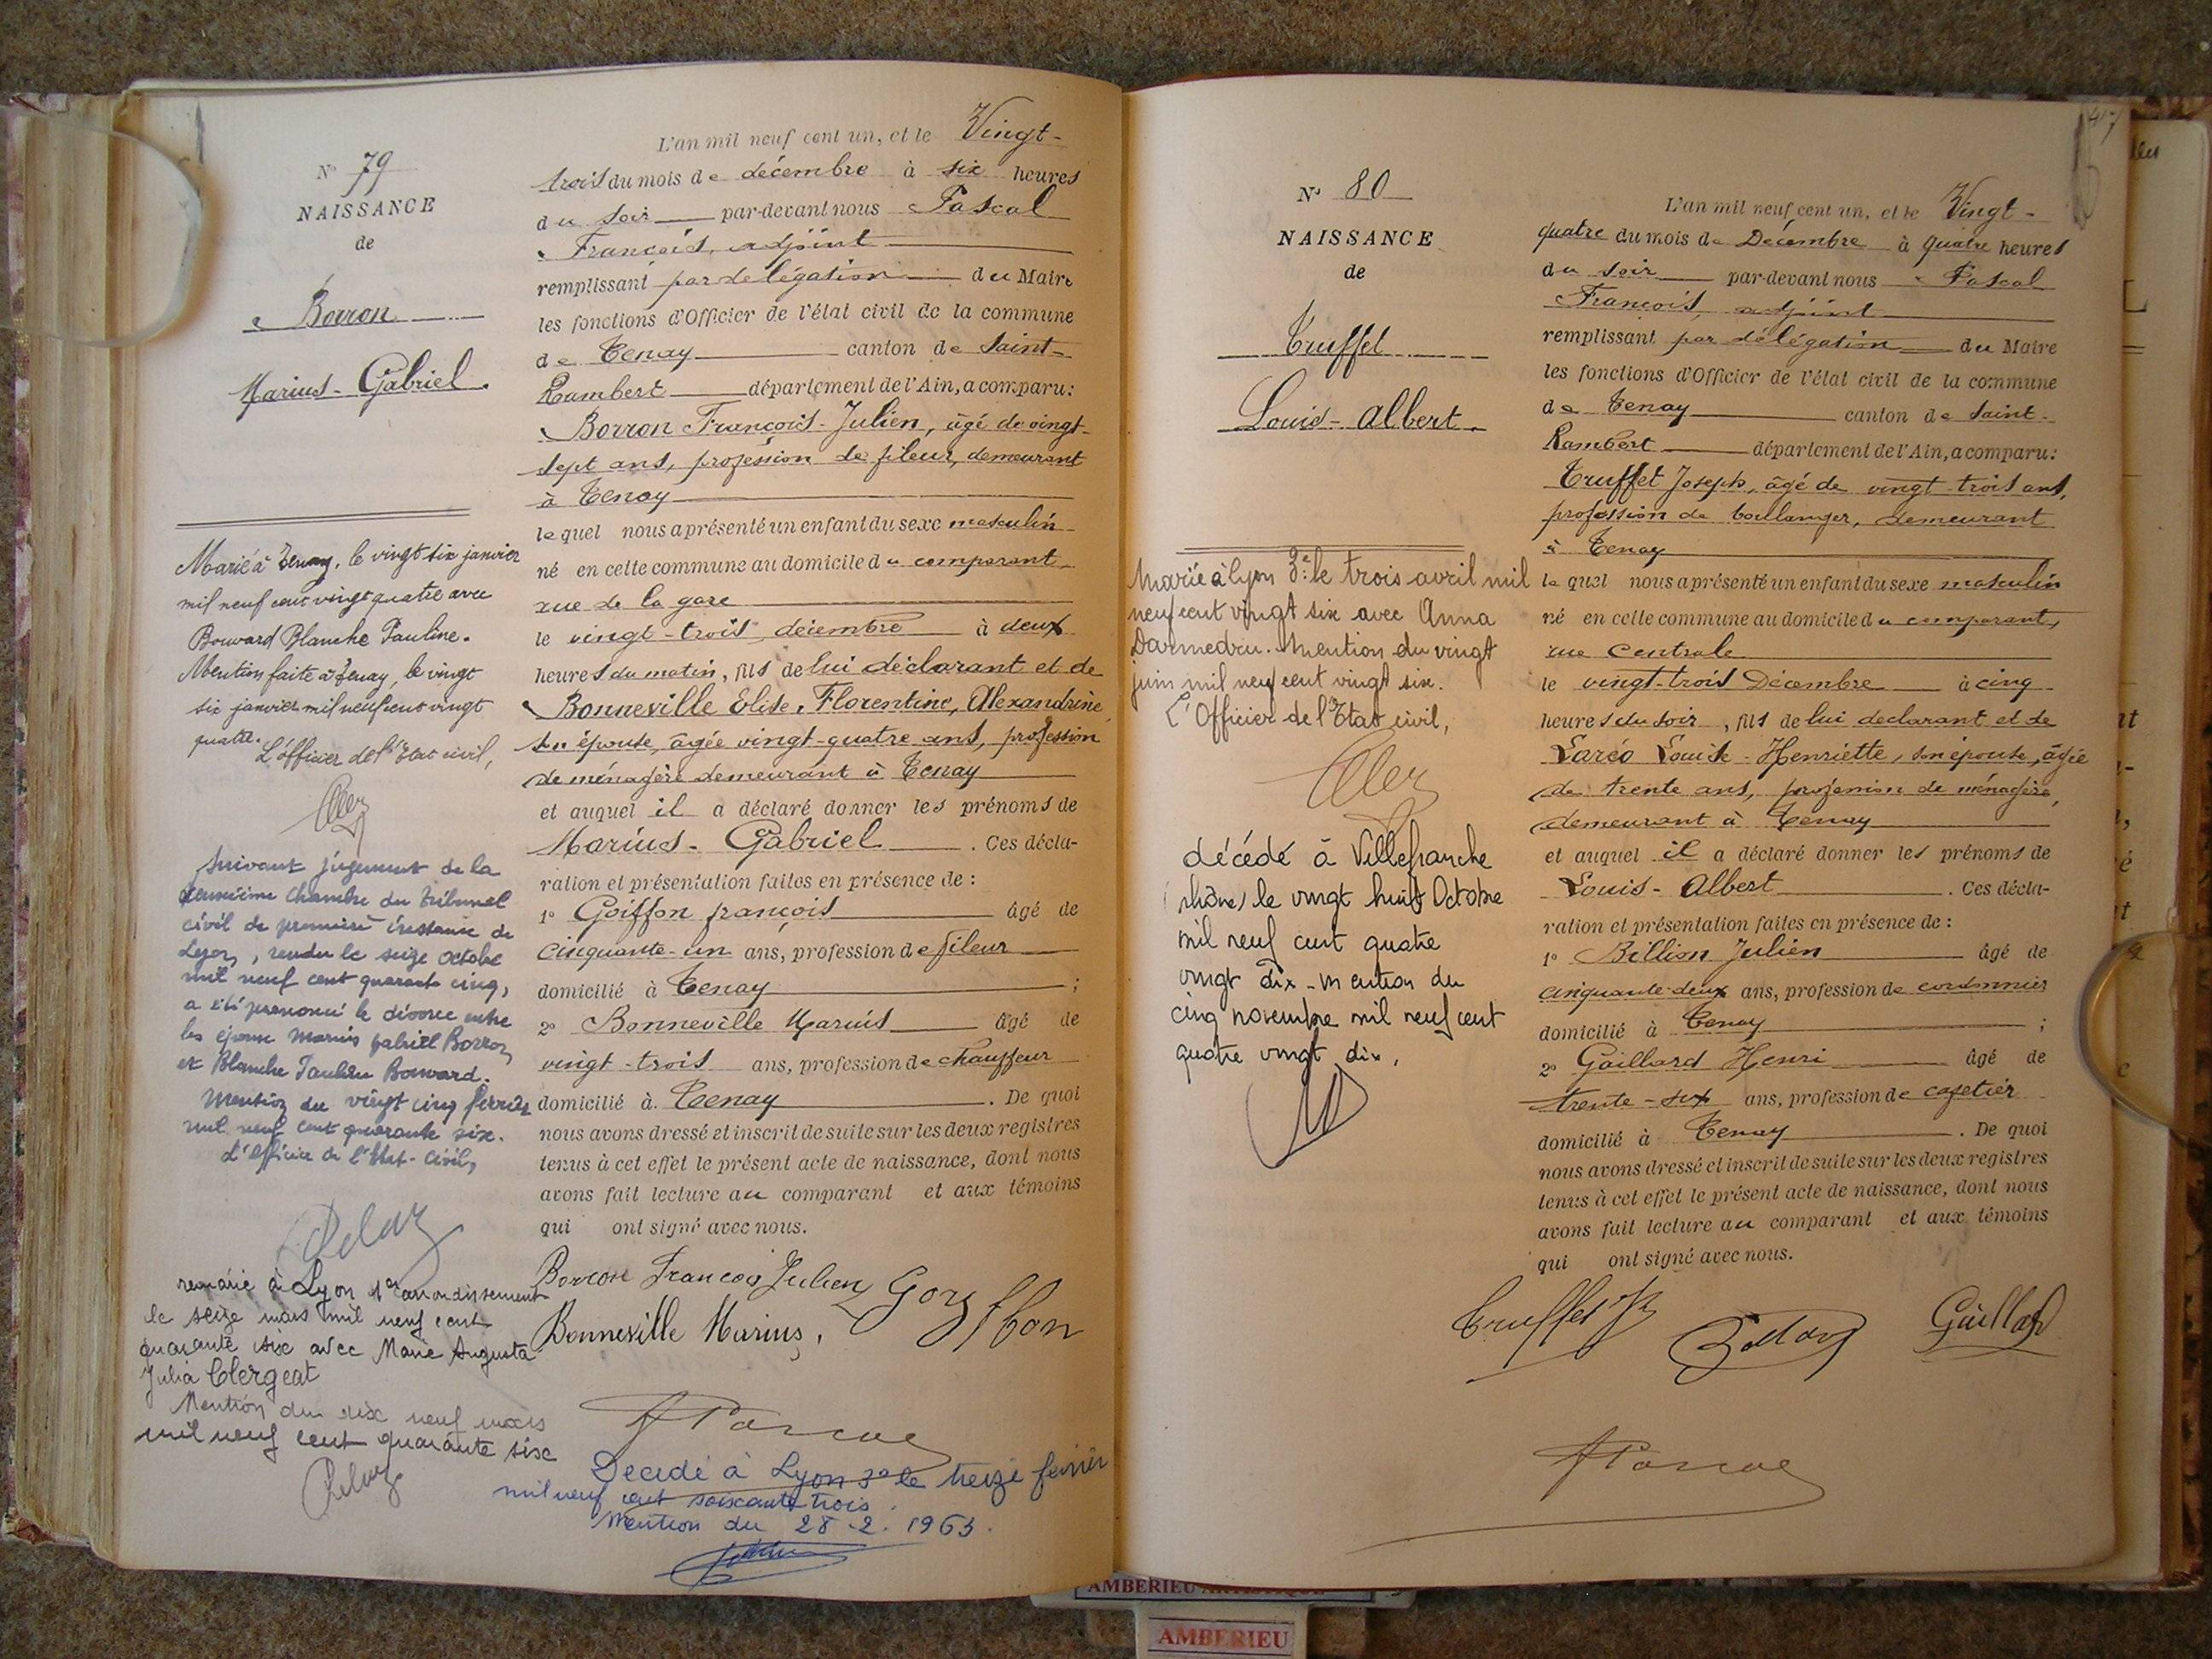 N° 79
NAISSANCE
de
Borron
Marius-Gabriel.
Marié à Tenay, le vingt six janvier
mil neuf cent vingt quatre avec
Bouvard Blanche Pauline.
Mention faite à Tenay, le vingt
six janvier mil neuf cent vingt
quatre.
L'officier de l'Etat civil,
Suivant jugement de la
Chambre du Tribunal
civil de première instance de
Lyon, rendu le seize octobre
mil neuf cent quarante cinq,
a été prononcé le divorce entre
les époux Marius Gabriel Borron
et Blanche Pauline Bouvard.
Mention du vingt cinq février
mil neuf cent quarante six.
L'officier de l'Etat-Civil,
remarié à Lyon 1er arrondissement
le seize mars mil neuf cent
quarante six avec Marie Augusta
Julia Clergeat
Mention du dix neuf mars
mil neuf cent quarante six
L'an mil neuf cent un, et le Vingt-
trois du mois de décembre à six heures
du soir par-devant nous Pascal
François, adjoint
remplissant par délégation du Maire
les fonctions d'Officier de l'état civil de la commune
de Tenay canton de Saint-
Rambert département de l'Ain, a comparu:
Borron François-Julien, âgé de vingt-
sept ans, profession de fileur, demeurant
à Tenay
lequel nous a présenté un enfant du sexe masculin
né en cette commune au domicile du comparant
rue de la gare
le vingt-trois décembre à deux
heures du matin, fils de lui déclarant et de
Bonneville Elise, Florentine, Alexandrine,
son épouse, âgée vingt-quatre ans, profession
de ménagère demeurant à Tenay
et auquel il a déclaré donner les prénoms de
Marius-Gabriel. Ces décla-
ration et présentation faites en présence de :
1° Goiffon françois âgé de
cinquante-un ans, profession de fileur
domicilié à Tenay ;
2° Bonneville Marius âgé de
vingt-trois ans, profession de chauffeur
domicilié à Tenay. De quoi
nous avons dressé et inscrit de suite sur les deux registres
tenus à cet effet le présent acte de naissance, dont nous
avons fait lecture au comparant et aux témoins
qui ont signé avec nous.
Borron François Julien
Bonneville Marius,
Décédé à Lyon 3e le treize février
mil neuf cent soixante trois.
Mention du 28.2.1963.
N° 80
NAISSANCE
de
Truffet
Louis-Albert.
Marié à Lyon 3e le trois avril mil
neuf cent vingt six avec Anna
Mention du vingt
juin mil neuf cent vingt six.
L'Officier de l'Etat civil,
décédé à Villefranche
(rhône) le vingt huit Octobre
mil neuf cent quatre
vingt dix - mention du
cinq novembre mil neuf cent
quatre vingt dix.
L'an mil neuf cent un, et le Vingt-
quatre du mois de Décembre à quatre heures
du soir par-devant nous Pascal
François, adjoint
remplissant par délégation du Maire
les fonctions d'Officier de l'état civil de la commune
de Tenay canton de Saint-
Rambert département de l'Ain, a comparu:
Truffet Joseph, âgé de vingt-trois ans,
profession de boulanger, demeurant
à Tenay
lequel nous a présenté un enfant du sexe masculin
né en cette commune au domicile du comparant,
rue Centrale
le vingt-trois Décembre à cinq
heures du soir, fils de lui déclarant et de
Louise-Henriette, son épouse, âgée
de trente ans, profession de ménagère,
demeurant à Tenay
et auquel il a déclaré donner les prénoms de
Louis-Albert. Ces décla-
ration et présentation faites en présence de :
1° Billion Julien âgé de
cinquante-deux ans, profession de cordonnier
domicilié à Tenay ;
2° Gaillard Henri âgé de
trente-six ans, profession de cafetier
domicilié à Tenay. De quoi
nous avons dressé et inscrit de suite sur les deux registres
tenus à cet effet le présent acte de naissance, dont nous
avons fait lecture au comparant et aux témoins
qui ont signé avec nous.
AMBERIEU